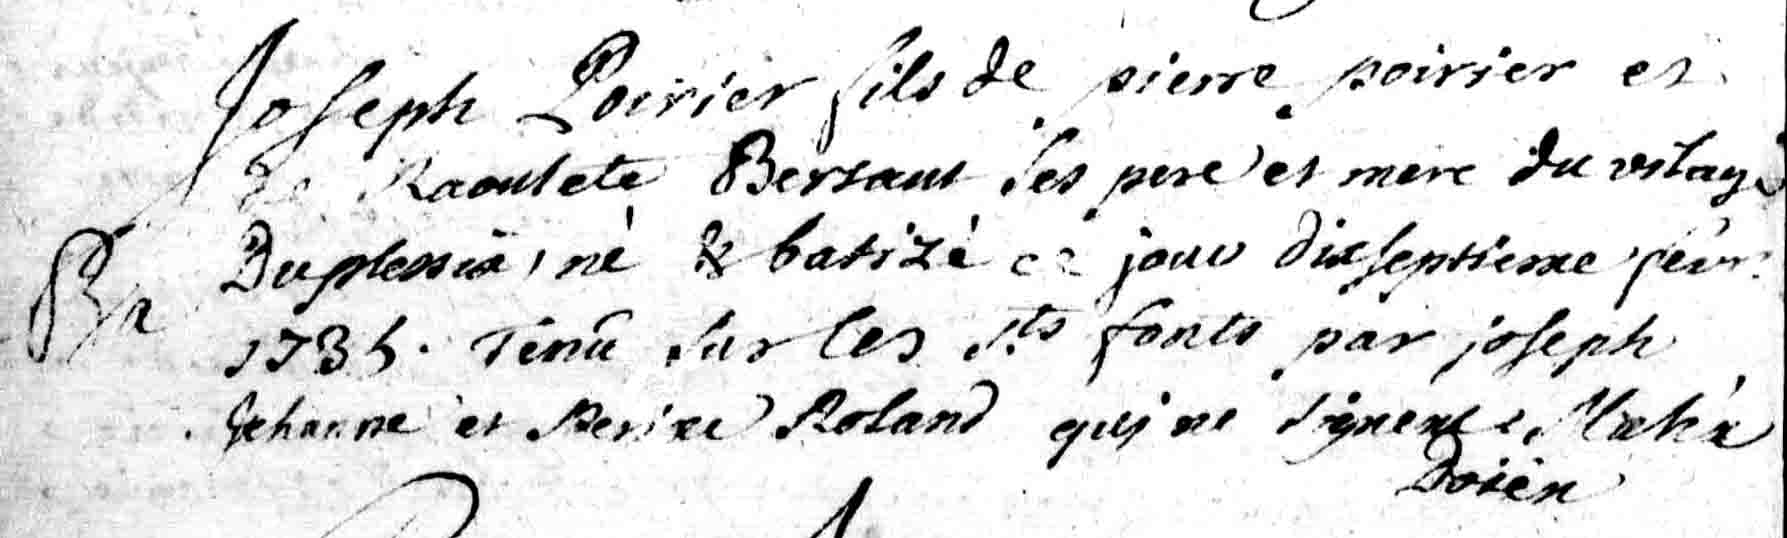 Joseph Poirier fils de pierre poirier et
de Raoulete Bersaut ses pere et mere du vilage
Duplessix, né & batizé ce jour dixseptieme fevr
1735. Tenu sur les Sts fonts par joseph
Jehanne et Perine Roland qui ne signent
Doïen